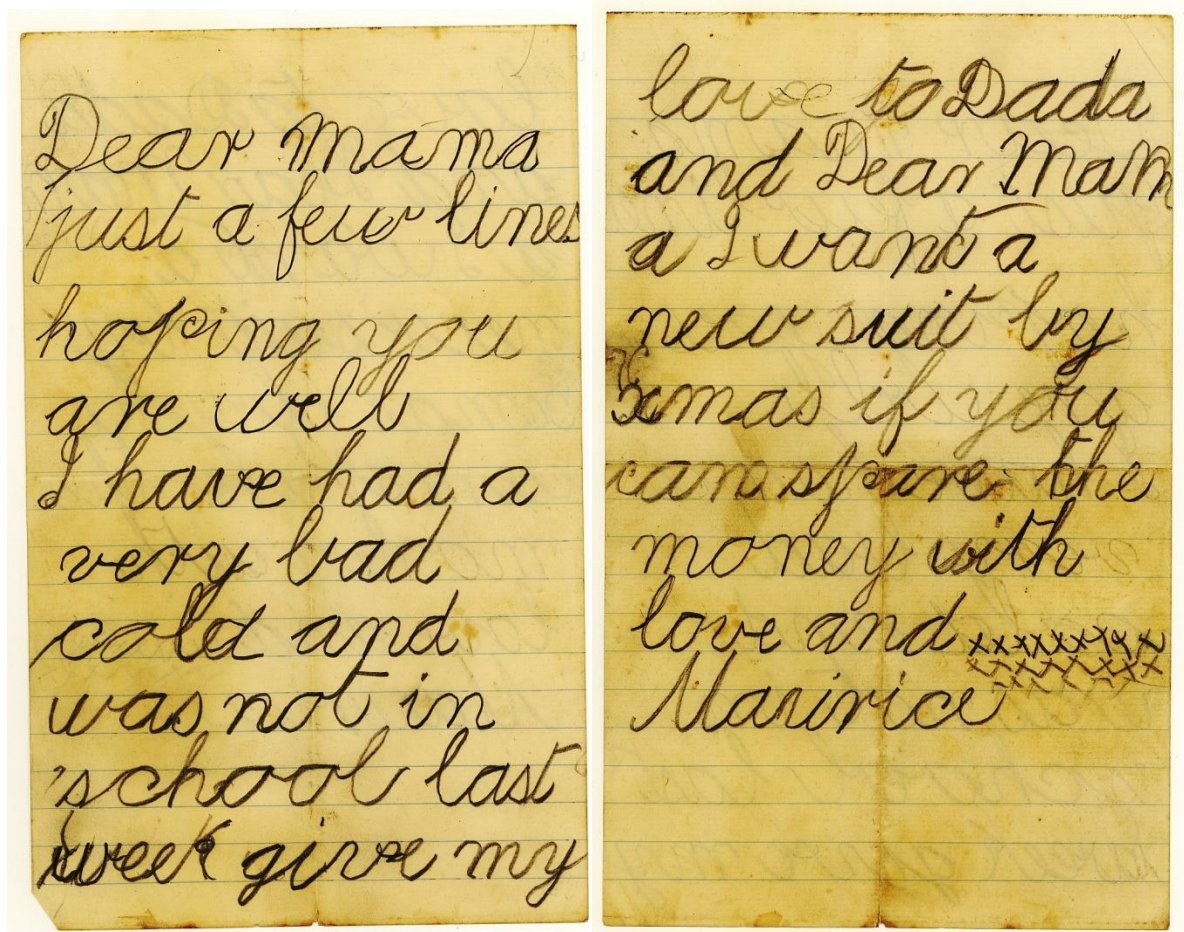 Dear Mama
just a few lines
hoping you
are well
I have had a
very bad
cold and
was not in
school last
week give my
love to Dada
and Dear Mam
a I want a
new suit by
Xmas if you
can spare the
money with
love and xxxxxxxxx
xxxxxxxx
Maurice